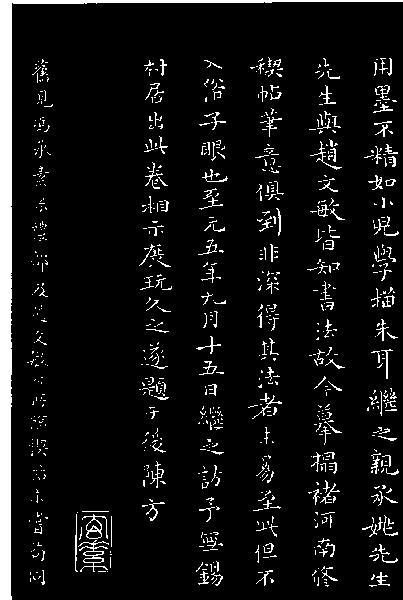 用墨不精如小兒學描朱耳繼之親承姚先生
先生與趙文敏皆知書法故今摹搨褚河南修
稧帖筆意俱到非深得其法者未易至此但不
入俗子眼也至元五年九月十五日繼之訪予無錫
村居出此卷相示展玩久之遂題于後陳方
舊見馮承素米禮部及趙文敏公所臨禊帖未嘗苟同